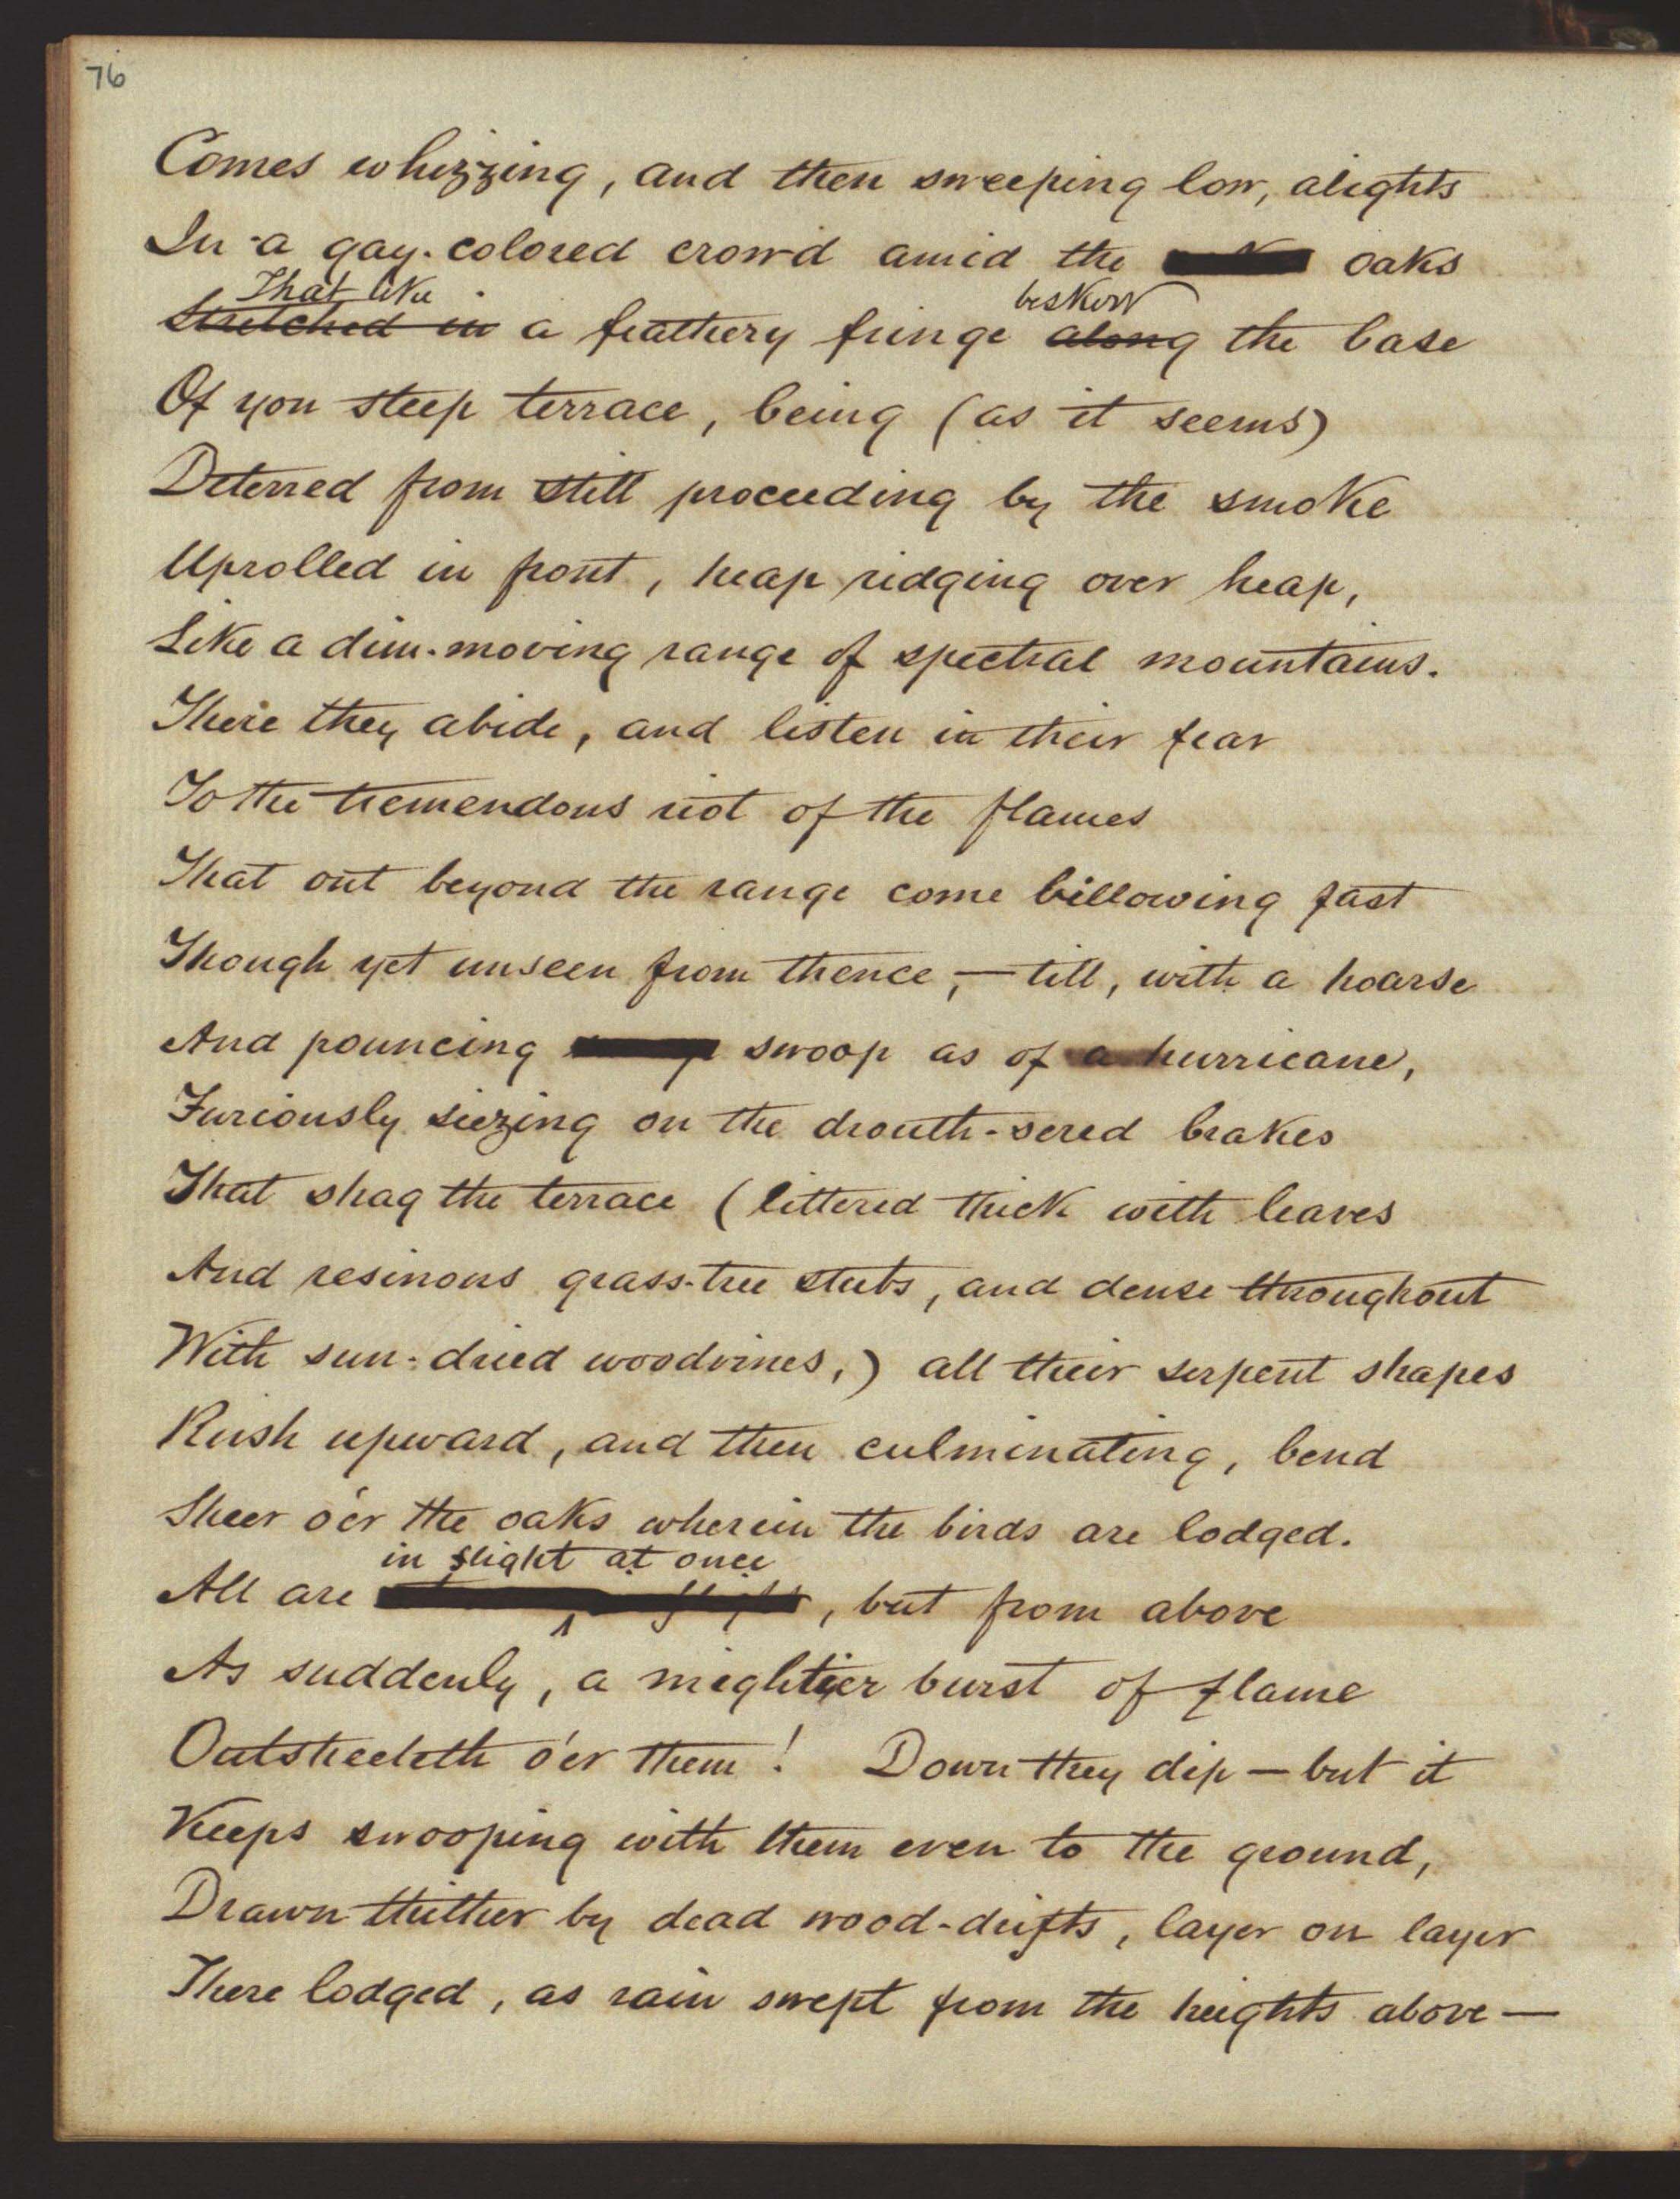 76
Comes whizzing, and then sweeping low, alights
In a gay-colored crowd amid the oaks
That like beskirr
Stretched in a feathery fringe along the base
Of yon steep terrace, being (as it seems)
Deterred from still proceeding by the smoke
Uprolled in front, heap ridging over heap,
Like a dim-moving range of spectral mountains.
There they abide, and listen in their fear
To the tremendous riot of the flames
That out beyond the range come billowing fast
Though yet unseen from thence,—till, with a hoarse
And pouncing swoop as of a hurricane,
Furiously siezing on the drouth-sered brakes
That shag the terrace (littered thick with leaves
And resinous grass-tree stubs, and dense throughout
With sun-dried woodvines,) all their serpent shapes
Rush upward, and then culminating, bend
Sheer o'er the oaks wherein the birds are lodged.
in flight at once
All are , but from above
As suddenly, a mightier burst of flame
Outsheeteth o'er them! Down they dip—but it
Keeps swooping with them even to the ground,
Drawn thither by dead wood-drifts, layer on layer
There lodged, as rain swept from the heights above—